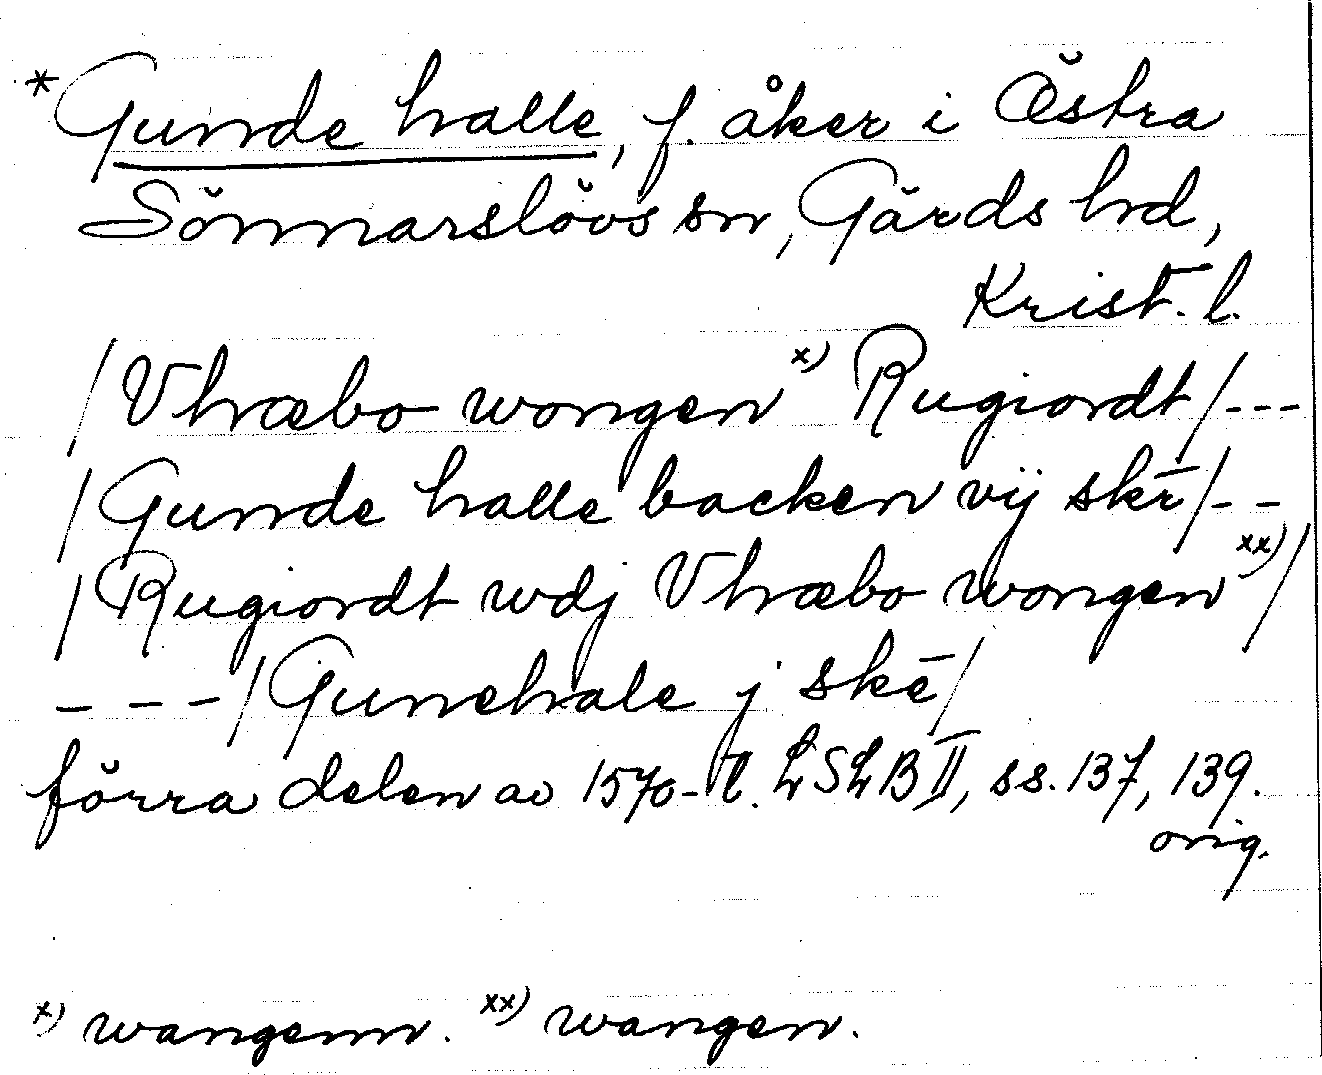 *Gunde halle, f. åker i Östra
Sönnarslövs sn, Gärds hd,
Krist. l.
/Vhræbo wongen x) Rugiordt/---
/Gunde halle backen vij skr̄/--
/Rugiordt wdj Vhræbo wongen xx)/
---/Gunehale j skē/
förra delen av 1570-t. LSLB II, ss. 137, 139.
orig.
x) wangenn. xx) wangen.